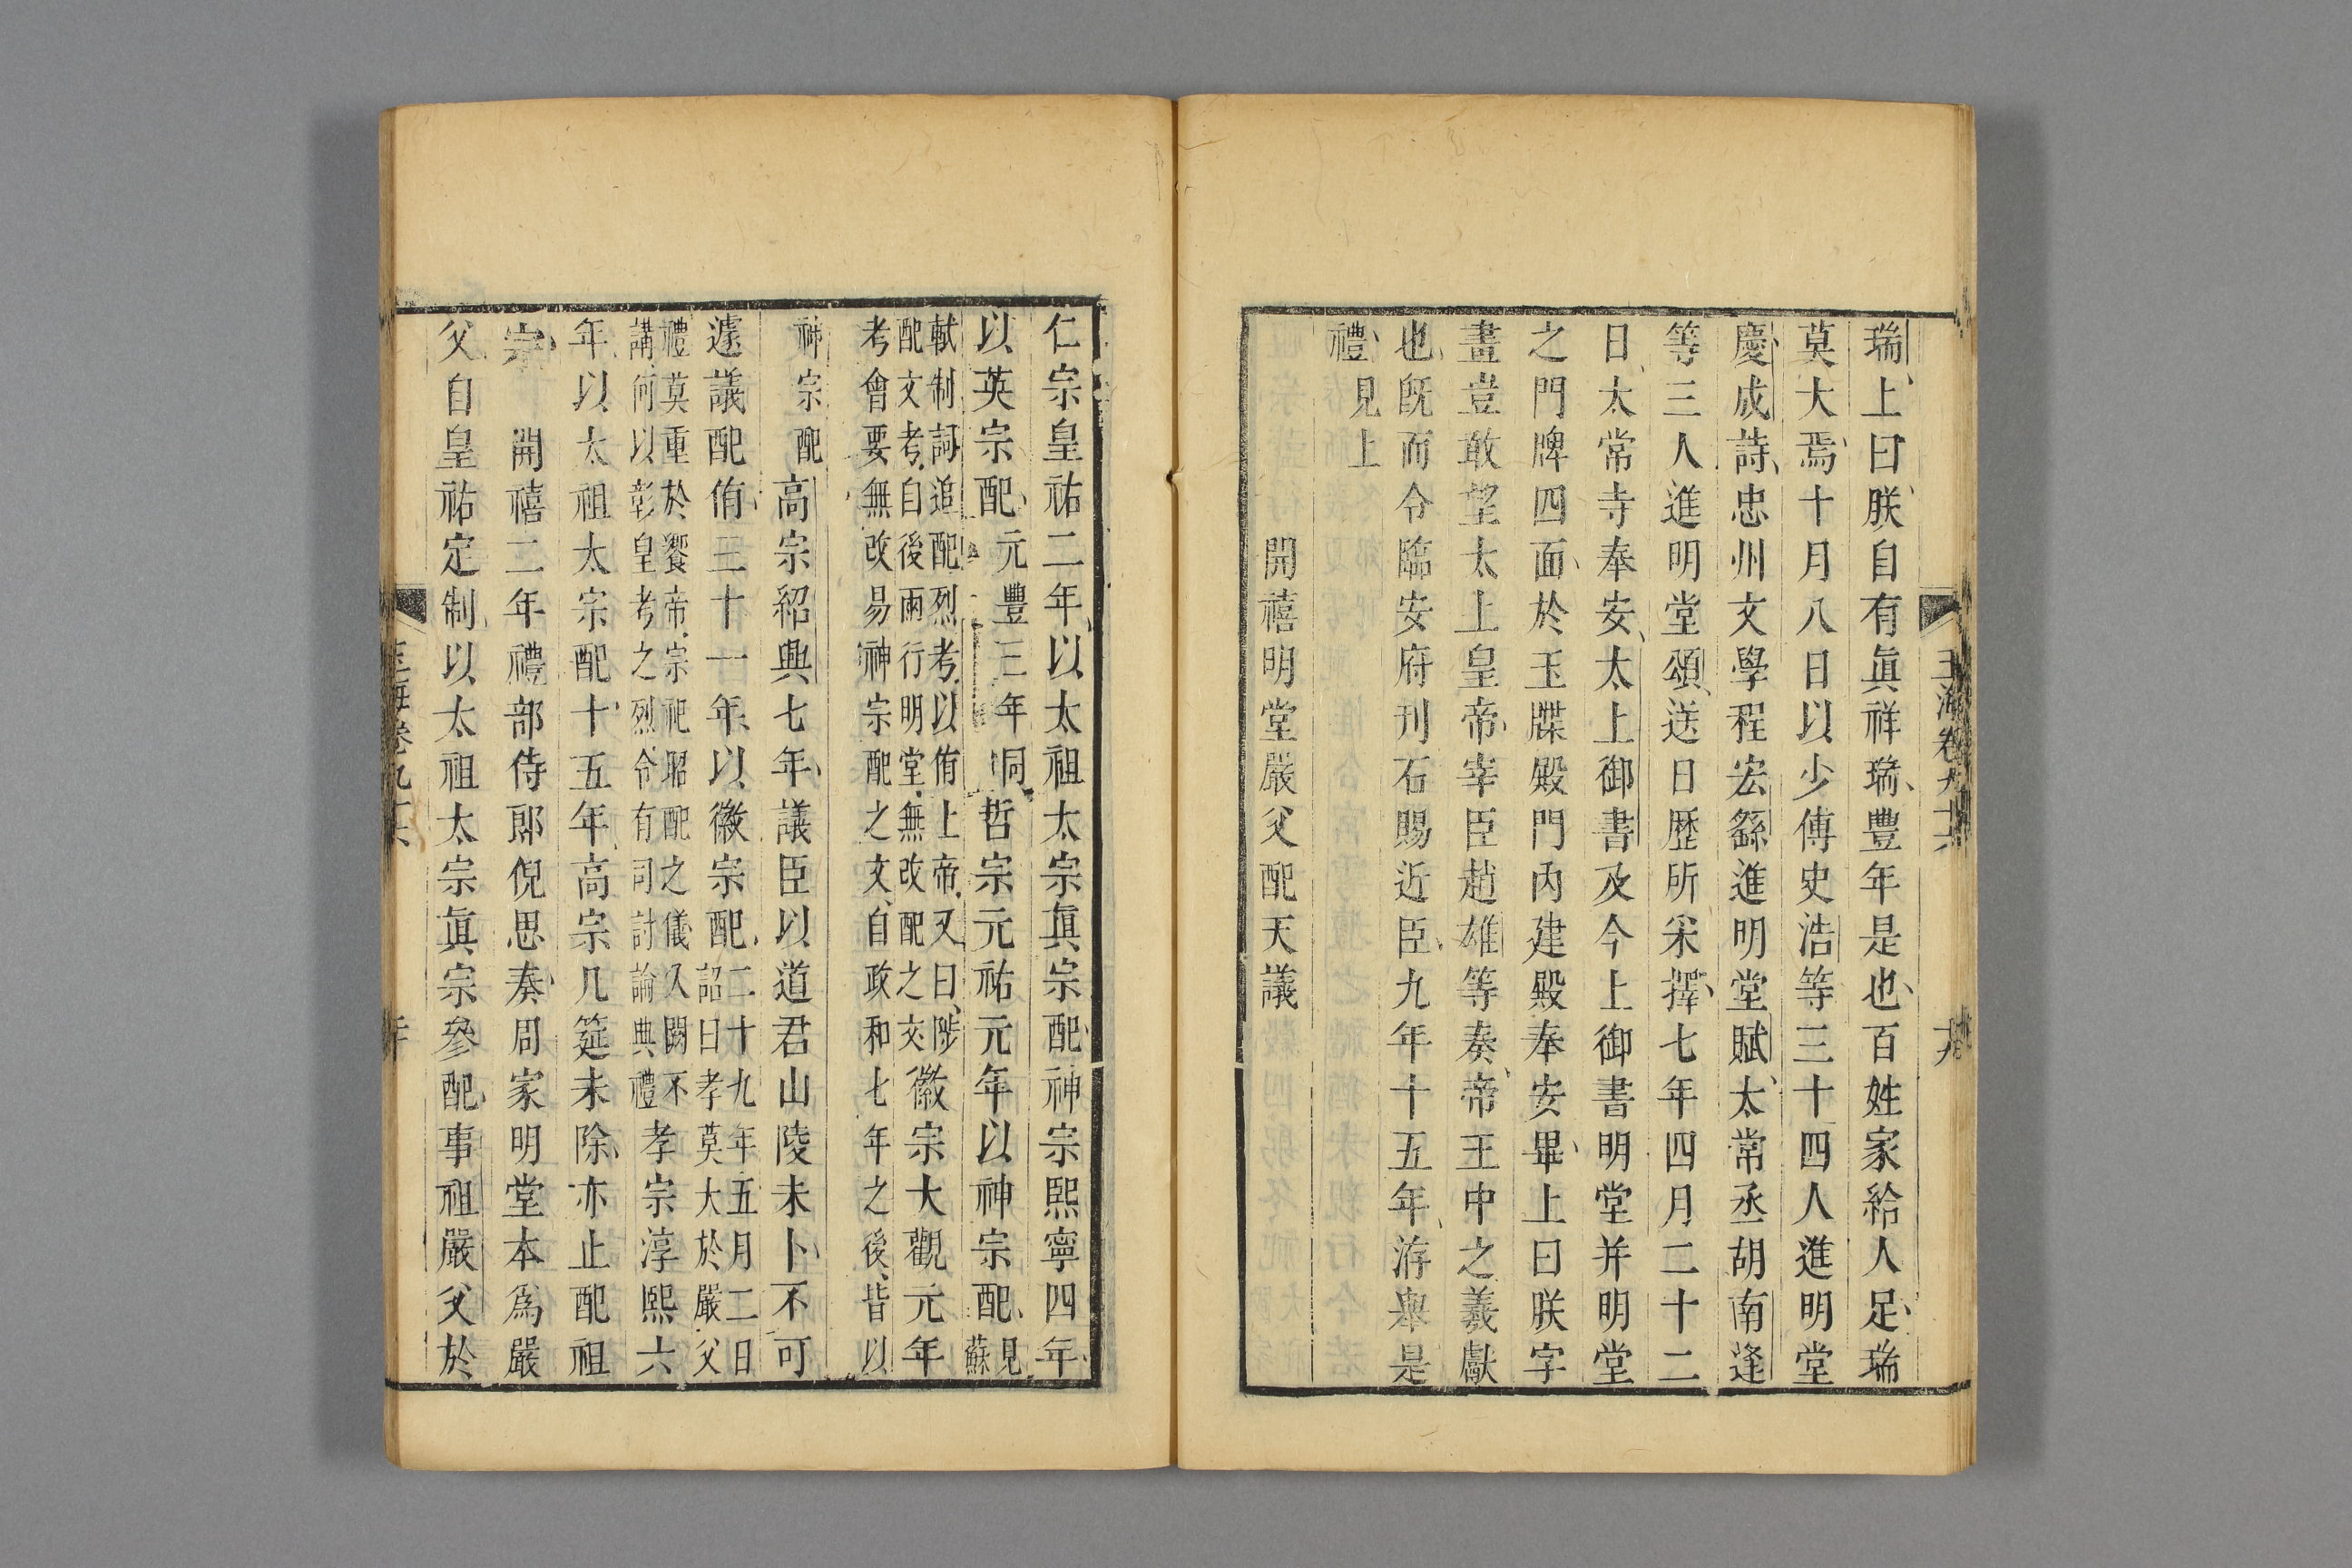 玉海卷九十六
瑞上曰朕自有眞祥瑞豐年是也百姓家給人足瑞
莫大焉十月八日以少傅史浩等三十四人進明堂
慶成詩忠州文學程宏繇進明堂賦太常丞胡南逢
等三人進明堂頌送日歷所采擇七年四月二十二
日太常寺奉安太上御書及今上御書明堂并明堂
之門牌四面於玉牒殿門內建殿奉安畢上曰朕字
畫豈敢望太上皇帝宰臣趙雄等奏帝王中之羲獻
也旣而令臨安府刊石賜近臣九年十五年洊舉是
禮見上
開禧明堂嚴父配天議
仁宗皇祐二年以太祖太宗眞宗配神宗熙寧四年
以英宗配元豐三年同哲宗元祐元年以神宗配見蘇
軾制詞追配烈考以侑上帝又曰陟
配文考自後兩行明堂無改配之文徽宗大觀元年
考會要無改易神宗配之文自政和七年之後皆以
神宗配高宗紹興七年議臣以道君山陵未卜不可
遽議配侑三十一年以徽宗配二十九年五月二日
詔曰孝莫大於嚴父
禮莫重於饗帝宗祀昭配之儀久闕不
講何以彰皇考之烈令有司討論典禮孝宗淳熙六
年以太祖太宗配十五年高宗几筵未除亦止配祖
宗開禧二年禮部侍郎倪思奏周家明堂本爲嚴
父自皇祐定制以太祖太宗眞宗參配事祖嚴父於
玉海卷九十六